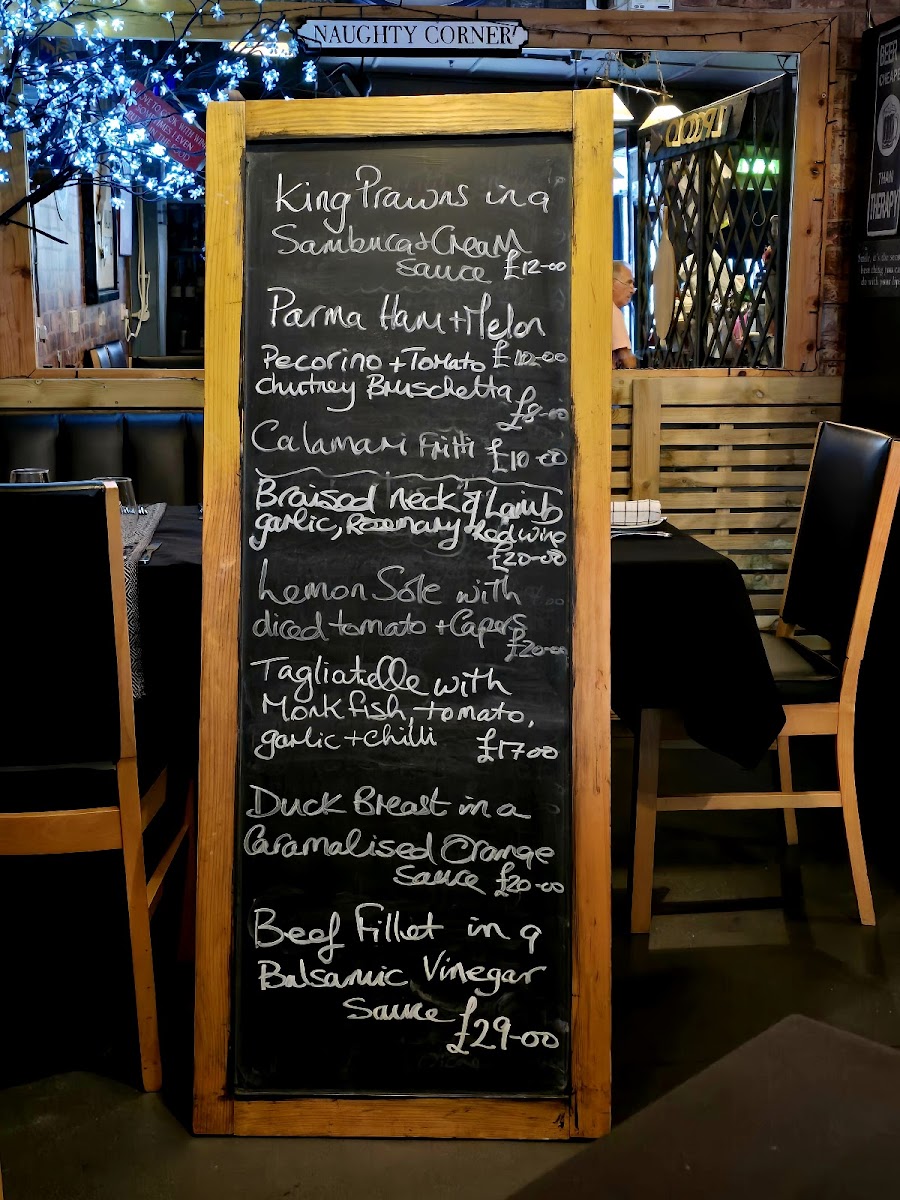 NAUGHTY CORNER
King Prawns in a
Sambuca + Cream
Sauce £12-00
Parma Ham + Melon
£10-00
Pecorino + Tomato
Chutney Bruschetta
£8-00
Calamari Fritti £10-00
Braised neck of Lamb
garlic, Rosemary + Red wine
£20-00
Lemon Sole with
diced tomato + Capers
£20-00
Tagliatelle with
Monkfish, tomato,
garlic + chilli £17-00
Duck Breast in a
Caramalised Orange
Sauce £20-00
Beef Fillet in a
Balsamic Vinegar
Sauce £29-00
BEER
CHEAPER
THAN
THERAPY